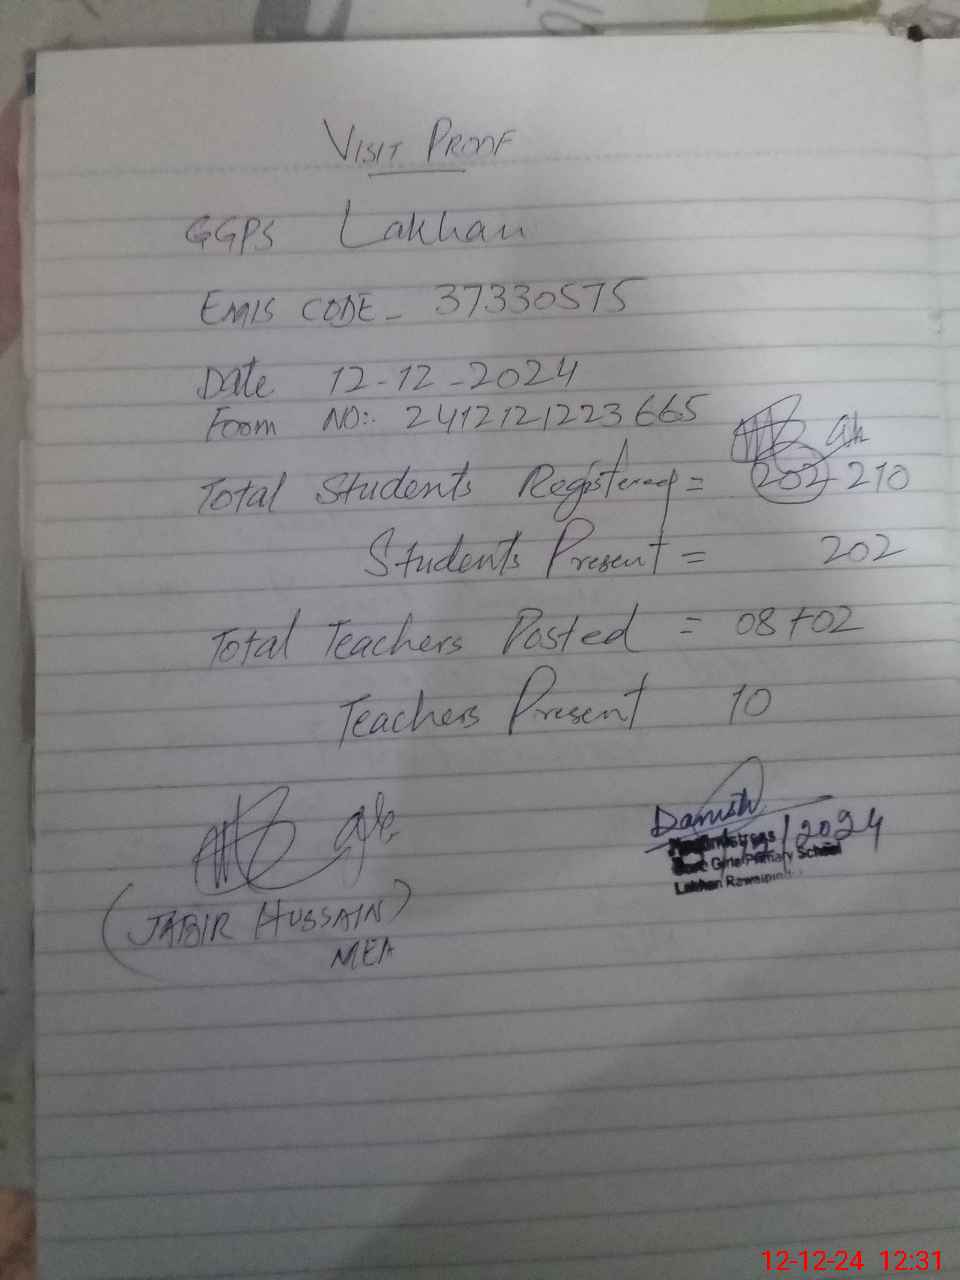 VISIT PROOF
GGPS Lakhan
EMIS CODE - 37330575
Date 12-12-2024
Form NO:. 2412121223665
Total Students Registered = 202 210
Students Present = 202
Total Teachers Posted = 08+02
Teachers Present 10
(JABIR HUSSAIN)
MEA
/2024
Girls Primary School
Lakhan Rawalpindi
12-12-24 12:31